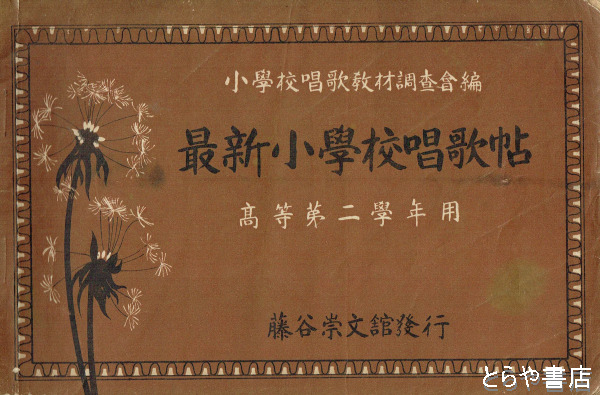 小學校唱歌敎材調査會編
最新小學校唱歌帖
高等第二學年用
藤谷崇文館發行
とらや書店